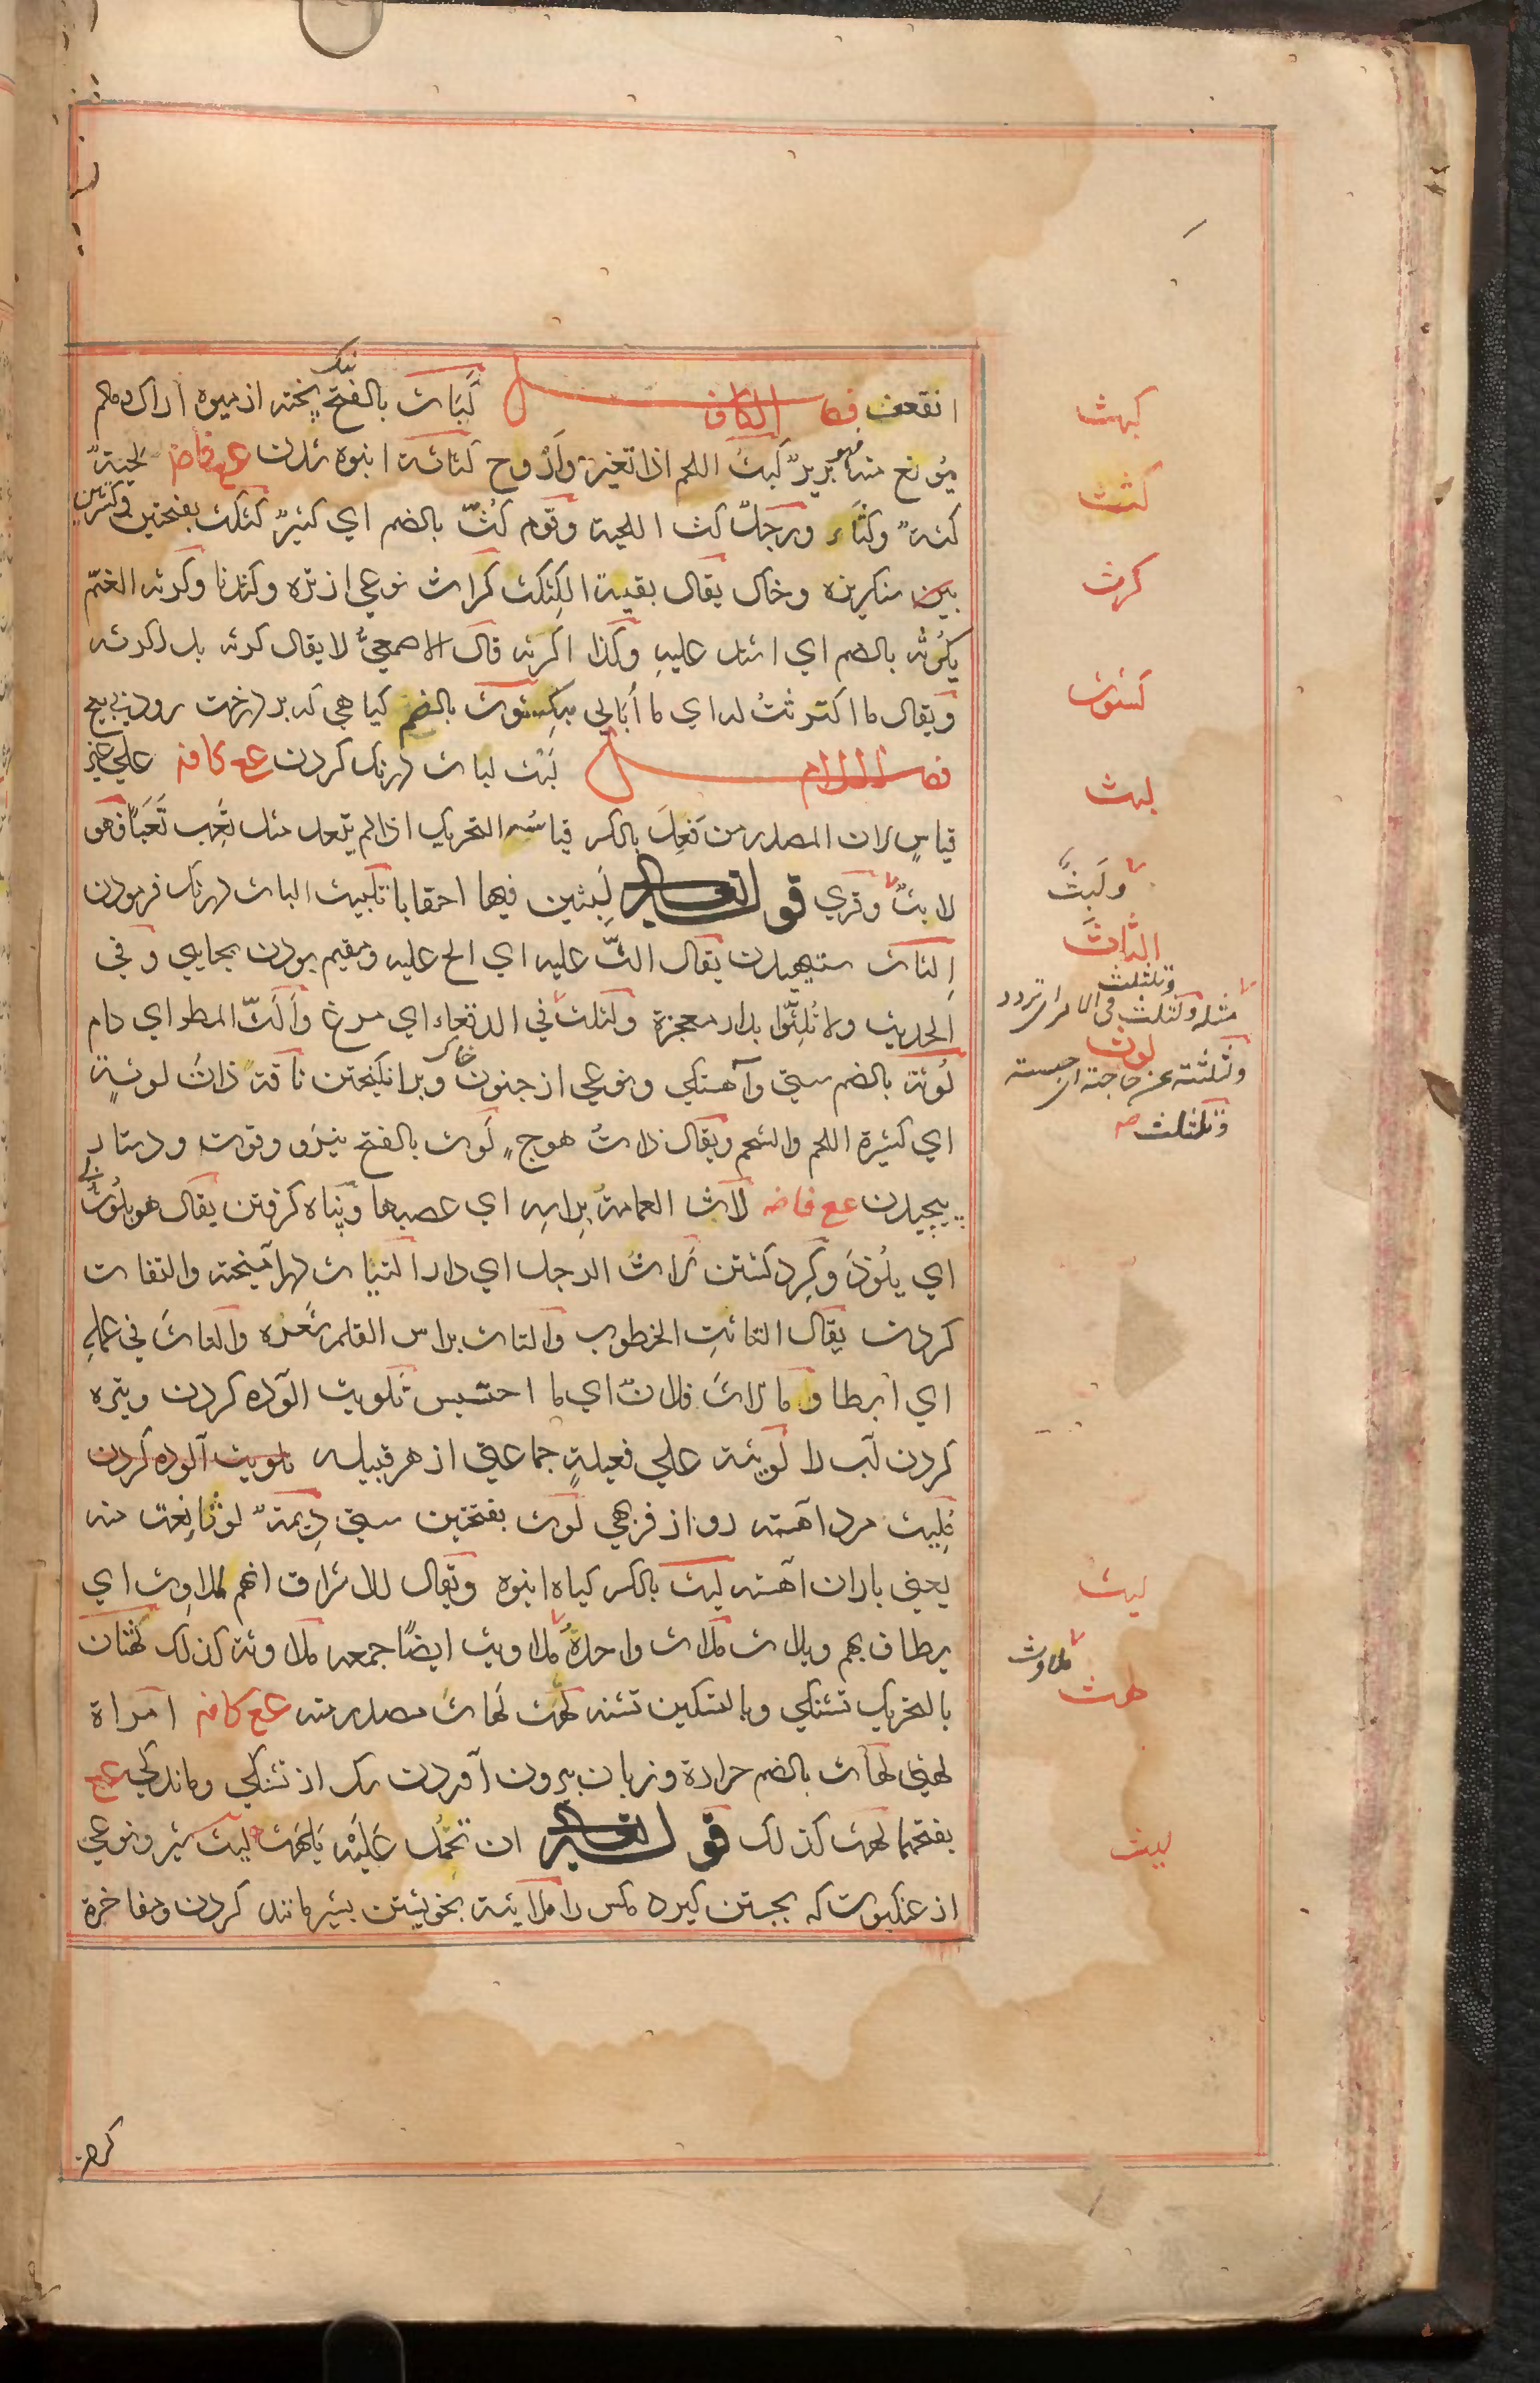 انقعث فصل الكاف كَبَاث بالفتح نيك پخته از ميوه اراك و مالم
يُونع منه فهو بريرٌ كَبِثَ اللحم اذا تغير وَأَرْوح كثاثة انبوه شدن ع ع فاضه لحيةٌ
كثةٌ وكثَّاء ورجلٌ كث اللحية وقوم كُثٌّ بالضم اي كثيرٌ كثكث بفتحتين وكسرتين
سنكريزه وخاك يقال بفيه الكِثكث كراث نوعي از تره وكندنا وكرثه الغمّ
يكرُثه بالضم اي اشتد عليهِ وكذا اكرثه قال الاصمعيُّ لا يقال كرثه بل اكرثه
ويقال ما اكترثتُ له اي ما أُبَالي به كشوث بالضم كياهي كه بر درخت رود بي بيخ
فصل اللام لَبْث لباث درنك كردن ع ع كافه علي غير
قياسٍ لان المصدر من فَعِلَ بالكسر قياسُه التحريك اذا لم يتعد مثل تَعِب تَعَبًا فهو
لابثٌ وقري قوله تعالى لَبِثين فيها احقابا تلبيث الباث درنك فرمودن
اِلثاث ستيهيدن يقال الثّ عليه اي الح عليه ومقيم بودن بجايي وفي
الحديث ولا تُلِثّوا بدار معجزة ولثلث في الدقعاء اي مرغ وَأَلثّ المطر اي دام
لُوثة بالضم سستي وآهستكي ونوعي از جنون وبرانكيختن خاك ناقةٌ ذاتُ لوثةٍ
اي كثيرة اللحم والشحم ويقال ذاتُ هوج لَوث بالفتح نيرو وقوت ودستار
پيچيدن ع ع فاضه لاث العمامةَ براسهِ اي عصبها وپناه كرفتن يقال هو يلُوث بي
اي يلُوذ وكِرد كشتن لَاثَ الرجل اي دار التياث درآميخته والتفات
كردن يقال التاثتِ الخطوب والتاث براس القلم شعره والتاثَ في عملهِ
اي أبطا وما لاث فلانٌ اي ما احتبس تلويث آلوده كردن وتيره
كردن آب را لَوِيثة علي فعيلةٍ جماعتي از هر قبيله تلويث آلوده كردن
مرد آهسته رو از فربهي لوث بفتحتين سستي دِيمةٌ لوثا نعت منه
يعني باران آهسته ليث بالكسر كياه انبوه ويقال للاشراف انهم لملاوث اي
يطاف بهم ويلاث ملاث واحدهُ ملاويث ايضًا جمعه ملاوثة كذلك لهثان
بالتحريك تشنكي وبالتسكين تشنه لهَث لهَاث مصدر منه ع ع كافه امراة
لهثي لهاث بالضم حرارة وزبان بيرون آوردن سك از تشنكي وماندكي ع ع
بفتحهما لهث كذلك قوله تعالى ان تحمل عَلَيْه يَلهَث ليث شير ونوعي
از عنكبوت كه بجستن كيرد مكس را ملايثة بخويشتن بشير مانند كردن ومفاخرة
كبث
كثث
كرث
كشوث
لبث
ولَبثٌ
الثاث
وتلثلث
مثله ولثلث في الامر اي تردد
لوث
ولثلثته عن حاجته اي حبسته
وتلثلث صح
ليث
ملاوث
لهث
ليث